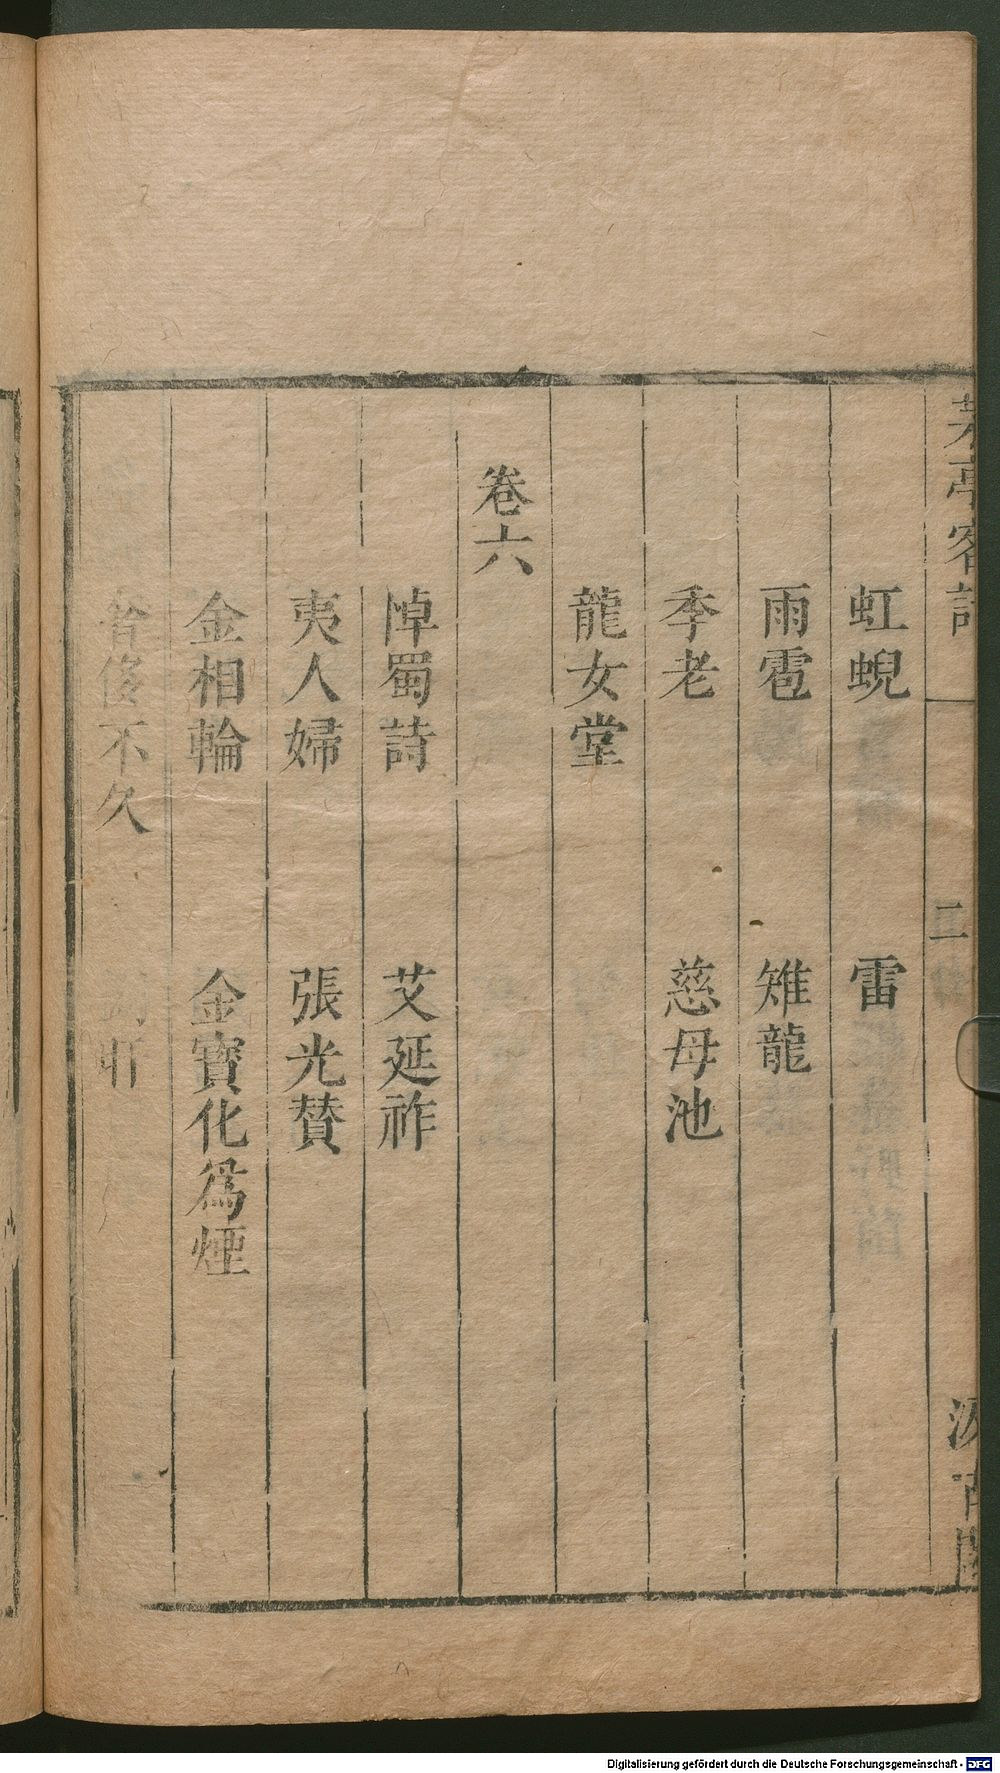 茅亭客話
二
汲古閣
虹蜺 雷
雨雹 雉龍
季老 慈母池
龍女堂
卷六
悼蜀詩 艾延祚
夷人婦 張光贊
金相輪 金寶化爲煙
不久
Digitalisierung gefördert durch die Deutsche Forschungsgemeinschaft - DFG